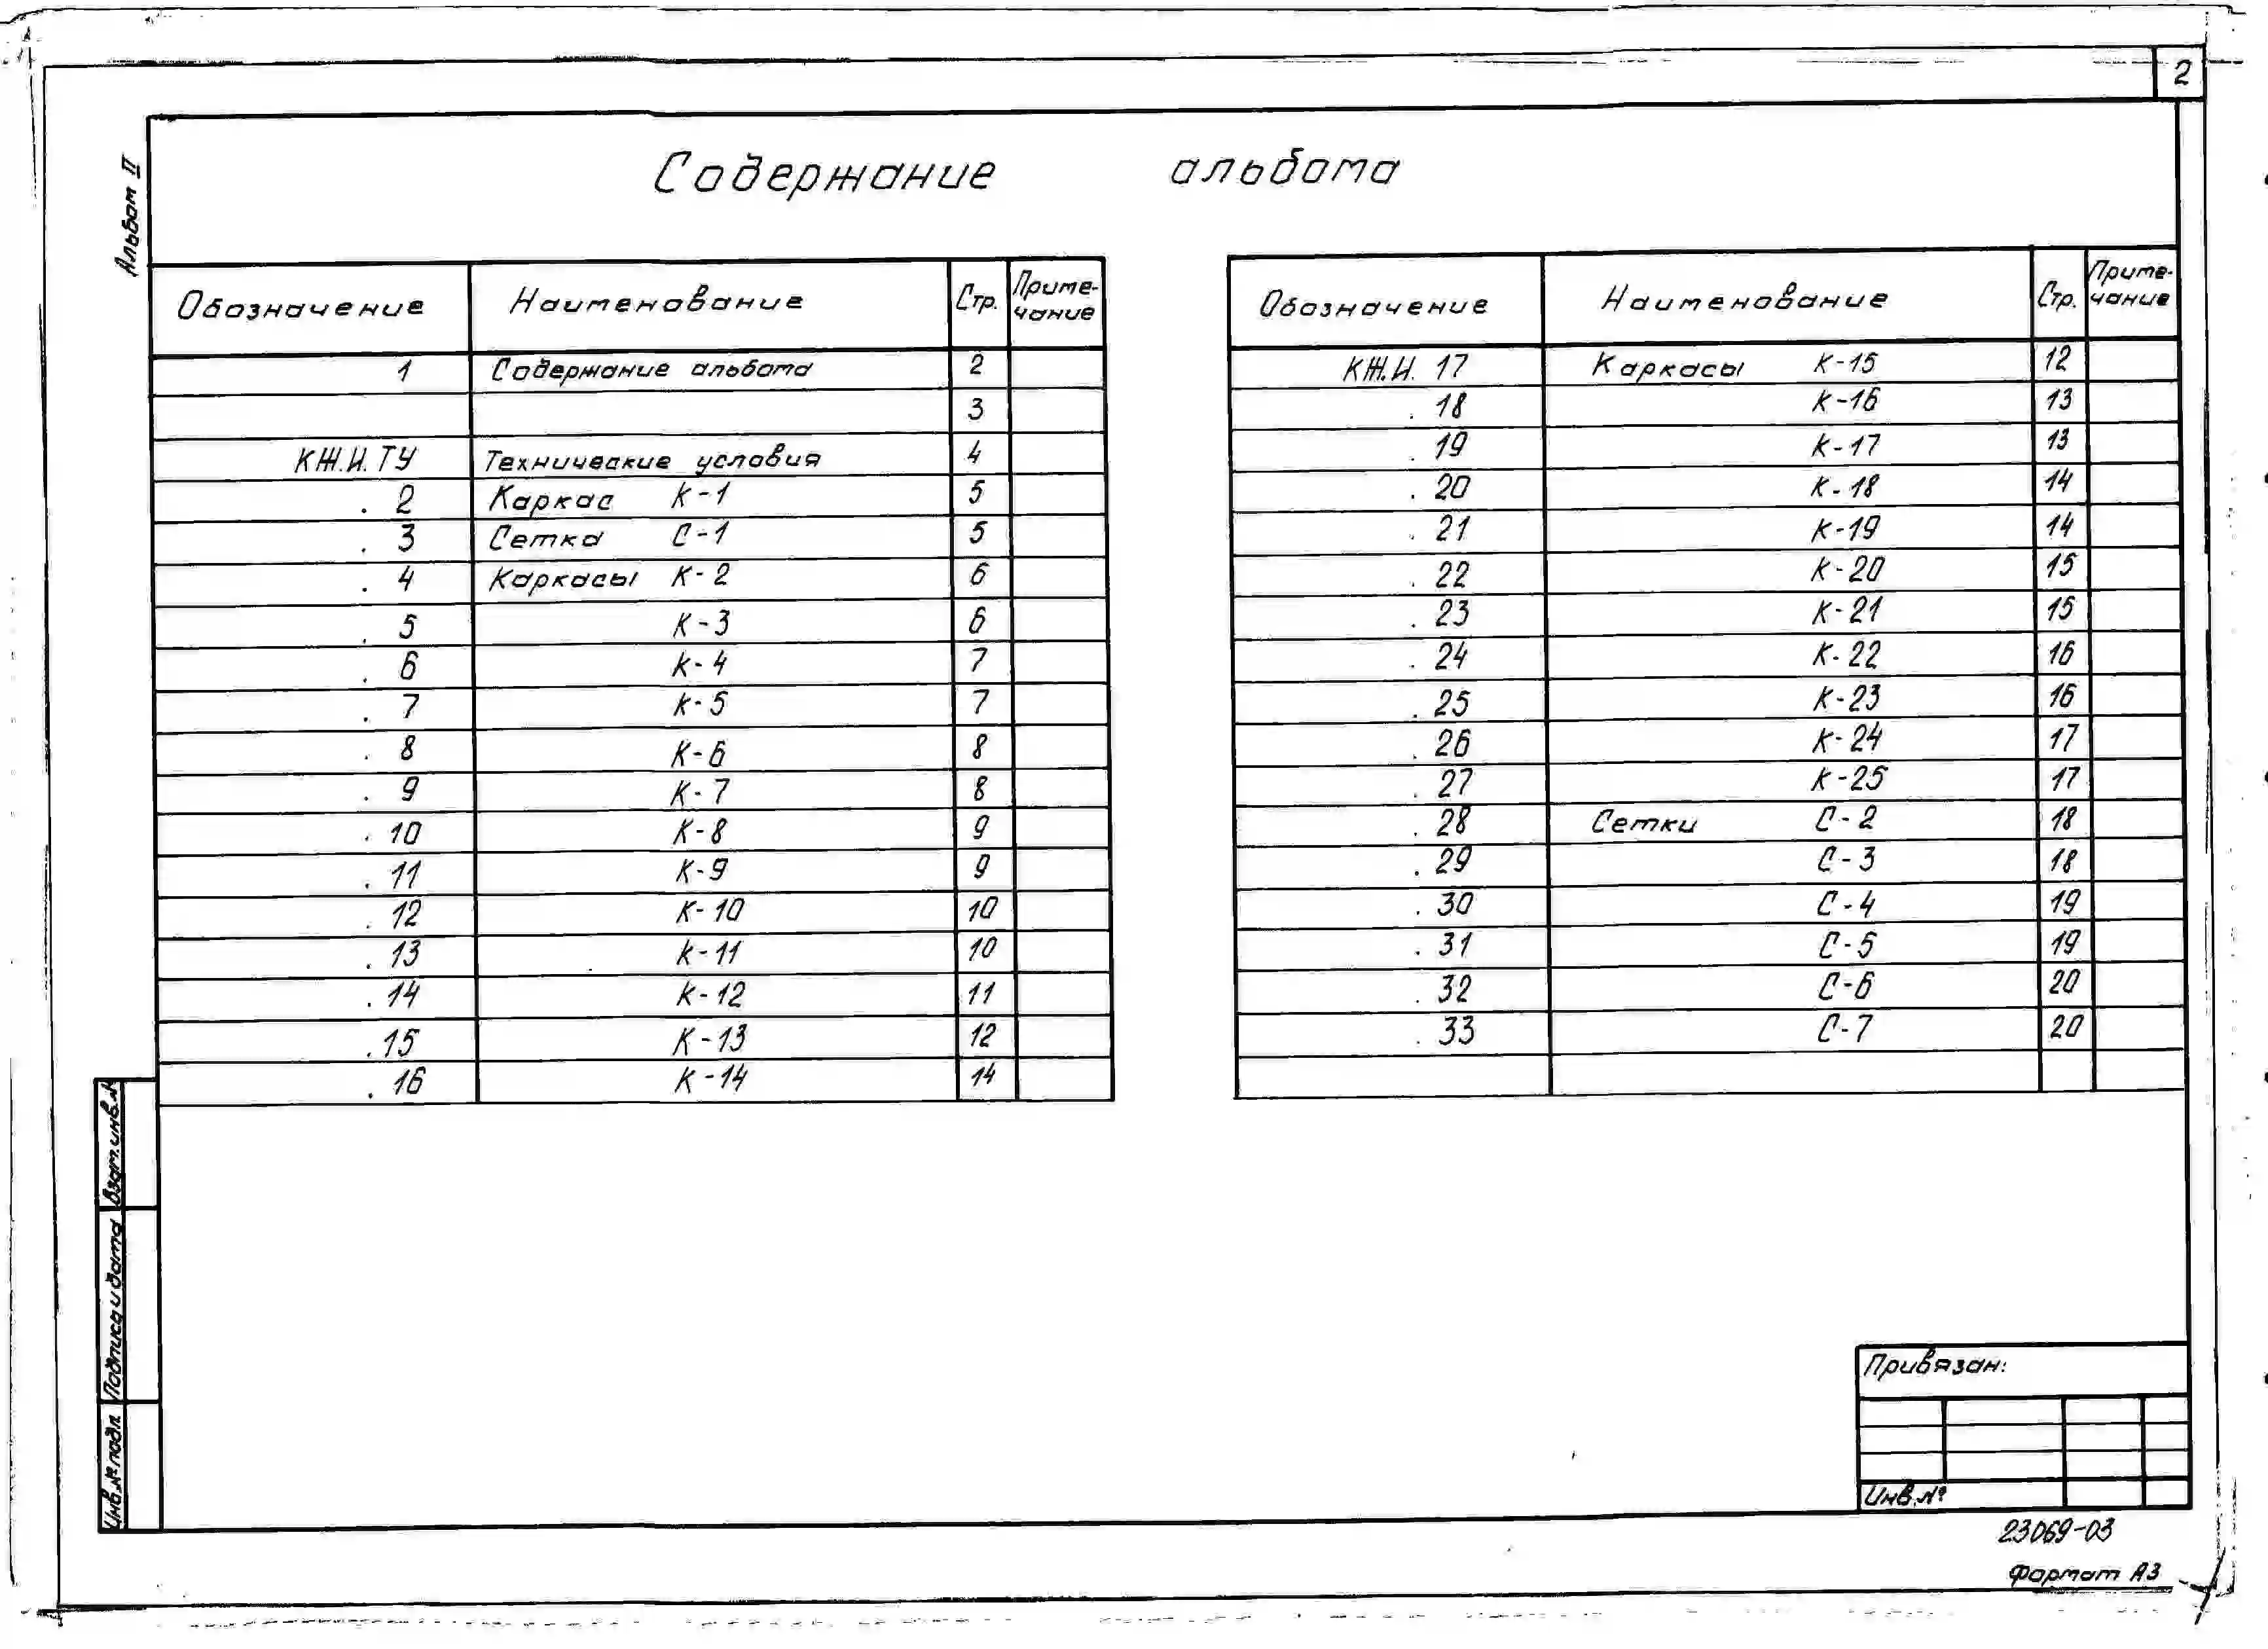 2
Альбом II
Содержание альбома
Обозначение Наименование Стр. Приме-чание
1 Содержание альбома 2
3
КЖ.И.ТУ Технические условия 4
. 2 Каркас К-1 5
. 3 Сетка С-1 5
. 4 Каркасы К-2 6
. 5 К-3 6
. 6 К-4 7
. 7 К-5 7
. 8 К-6 8
. 9 К-7 8
. 10 К-8 9
. 11 К-9 9
. 12 К-10 10
. 13 К-11 10
. 14 К-12 11
. 15 К-13 12
. 16 К-14 14
Обозначение Наименование Стр. Приме-чание
КЖ.И. 17 Каркасы К-15 12
. 18 К-16 13
. 19 К-17 13
. 20 К-18 14
. 21 К-19 14
. 22 К-20 15
. 23 К-21 15
. 24 К-22 16
. 25 К-23 16
. 26 К-24 17
. 27 К-25 17
. 28 Сетки С-2 18
. 29 С-3 18
. 30 С-4 19
. 31 С-5 19
. 32 С-6 20
. 33 С-7 20
Взам.инв.№
Подпись и дата
Инв.№ подл
Привязан:
Инв.№
23069-03
Формат А3